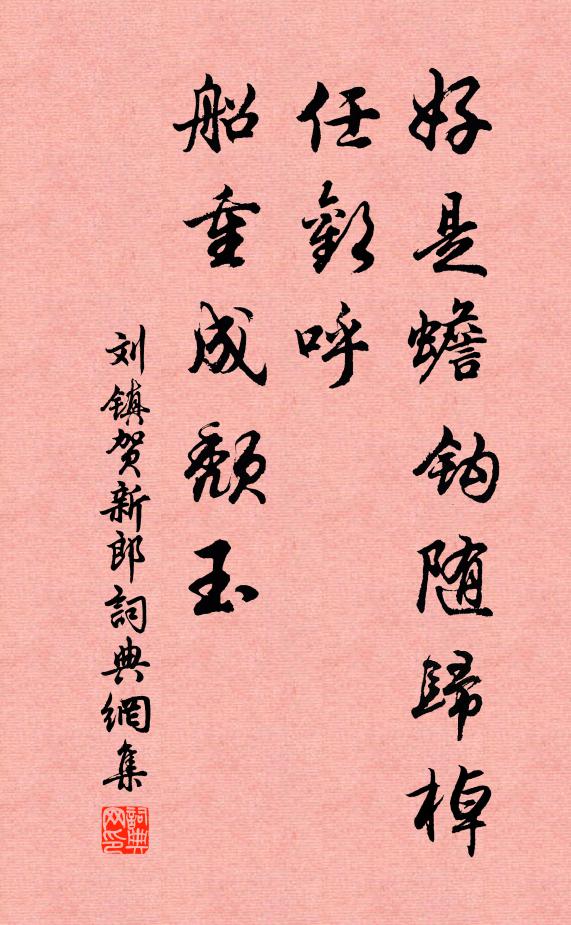 好是蟾钩随歸棹
任歡呼
船重成頹玉
刘镇贺新郎詞典網集
詞典网印